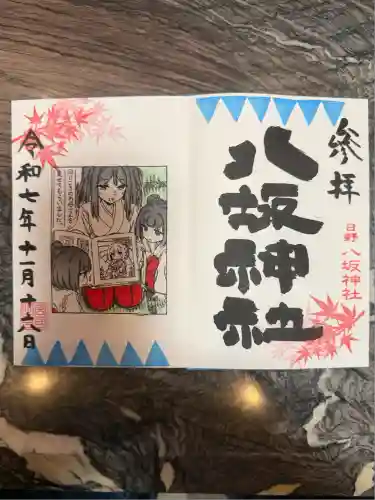 参拝
日野 八坂神社
八坂神社
令和七年十一月十六日